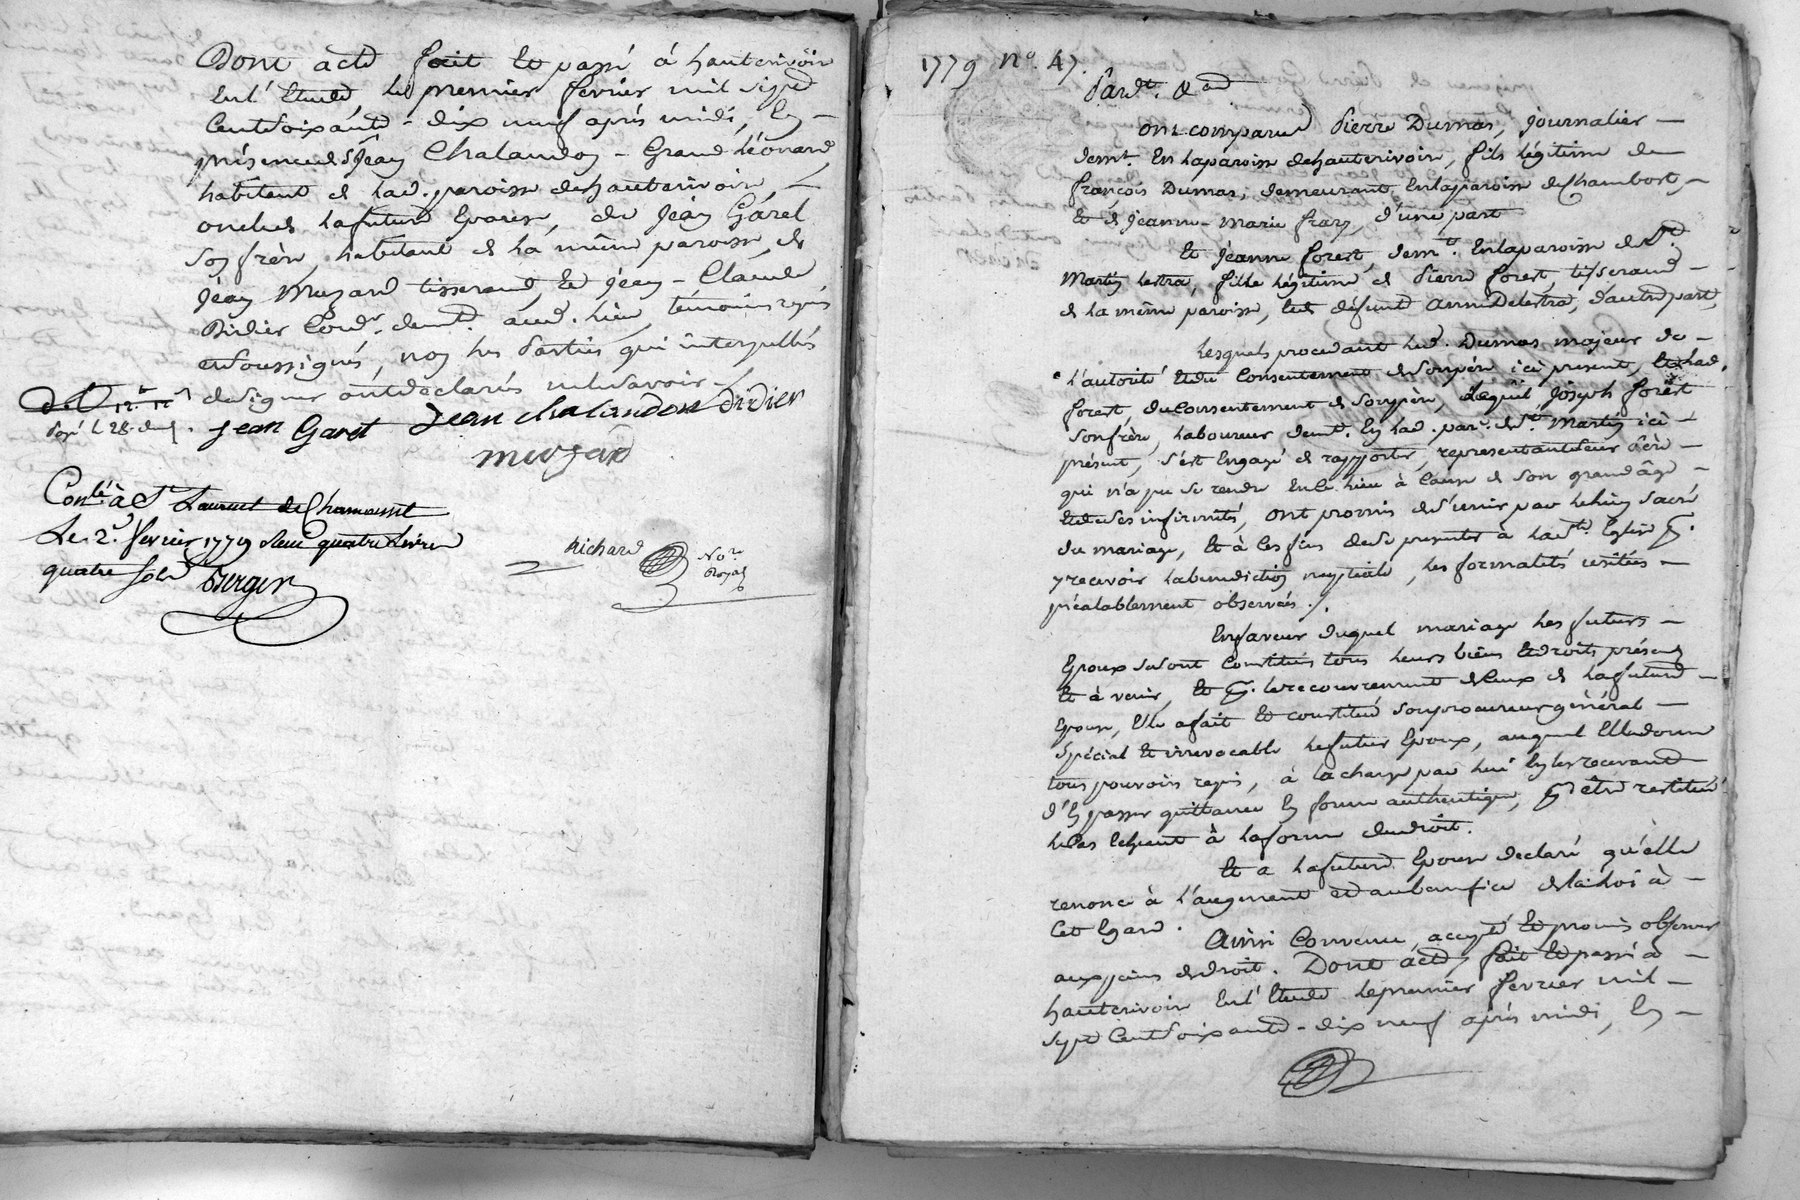 Dont acte fait et passé à hauterivoir
En l'Etude, le premier fevrier mil sept
Cent soixante-dix neuf après midi, En
présence de s. Jean Chalandon - Grand Léonard,
habitant de lad. paroisse de hauterivoire,
oncle de la future Epouse, de Jean Garel
son frère, habitant de la même paroisse, de
Jean Muzard tisserand, et Jean-Claude
Didier Cord.r demt. aud. lieu, témoins requis
et soussignés, non les Parties qui interpellés
de signer ont déclarés ne le savoir
jean Garet Jean chalandon didier
muzard
Con.lé à S.t Laurent de Chamousset
Le 2.e fevrier 1779 Reçu quatre Livres
quatre sols Berger
Richard No.re
Royal
1779 n.o 47.
Pardt. &ca
ont comparu Pierre Dumas, journalier
demt. En la paroisse de hauterivoire, fils légitime de
françois Dumas, demeurant En la paroisse de Chambost,
et de Jeanne-marie , d'une part
Et Jeanne forest, demt. En la paroisse de St.
Martin Lestra, fille légitime de Pierre forest, tisserand
de la même paroisse, et de défunte Anne Delestra, d'autre part,
Lesquels procedant led. Dumas majeur de
l'autorité et du Consentement de son père ici present, et lad.
forest, du Consentement de son père, lequel Joseph forêst
son frère, laboureur demt. En lad. par. de St. Martin ici
présent, s'est Engagé de rapporter, representant leur père
qui n'a pu se rendre En ce lieu à Cause de son grand âge
et de ses infirmités, ont promis de s'unir par le lien sacré
du mariage, et à ces fins de se presenter à la Ste. Eglise p.
y recevoir la benediction nuptiale, les formalités usitées
préalablement observées.
En faveur duquel mariage les futurs
Epoux se sont Constitués tous leurs biens et droits présens
et à venir, et p. le recouvrement de Ceux de la future
Epouse, Elle a fait et constitué son procureur général
Spécial et irrevocable le futur Epoux, auquel Elle donne
tous pouvoirs requis, à la charge par lui En les recevant
d'En passer quittance En forme authentique, p. être restitué
le Cas Echeant à la forme du droit.
Et a la future Epouse declaré qu'elle
renonce à l'augment et au benefice de la Loi à
Cet Egard.
Ainsi Convenu, accepté et promis observer
aux peines de droit. Dont acte, fait et passé à
hauterivoir En l'Etude le premier fevrier mil
sept Cent soixante-dix neuf après midi, En